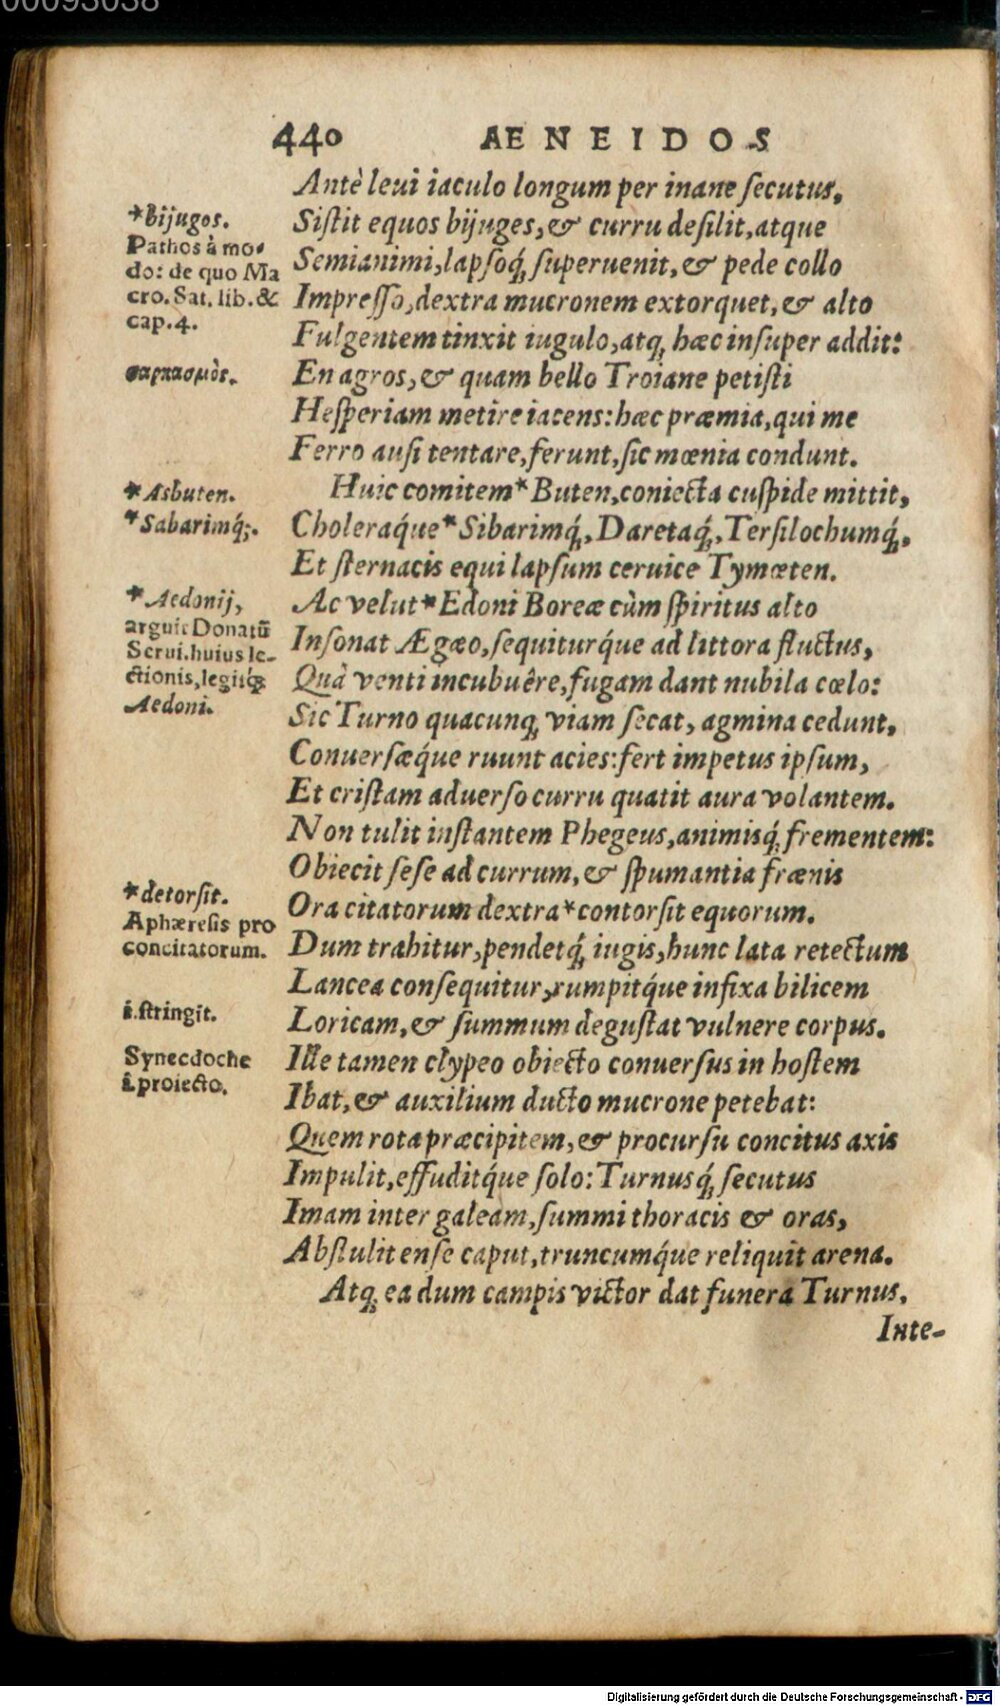 00093038
440 AENEIDOS
Antè leui iaculo longum per inane ſecutus,
Siſtit equos bijuges, & curru deſilit, atque
Semianimi, lapſoq́; ſuperuenit, & pede collo
Impreſſo, dextra mucronem extorquet, & alto
Fulgentem tinxit iugulo, atq; hæc inſuper addit:
En agros, & quam bello Troiane petiſti
Heſperiam metire iacens: hæc præmia, qui me
Ferro auſi tentare, ferunt, ſic mœnia condunt.
Huic comitem * Buten, coniecta cuſpide mittit,
Choleraq́ue * Sibarimq́;, Daretaq́;, Terſilochumq́;,
Et ſternacis equi lapſum ceruice Tymœten.
Ac velut * Edoni Boreæ cùm ſpiritus alto
Inſonat Ægæo, ſequiturq́ue ad littora fluctus,
Quà venti incubuêre, fugam dant nubila cœlo:
Sic Turno quacunq; viam ſecat, agmina cedunt,
Conuerſæq́ue ruunt acies: fert impetus ipſum,
Et criſtam aduerſo curru quatit aura volantem.
Non tulit inſtantem Phegeus, animisq́; frementem:
Obiecit ſeſe ad currum, & ſpumantia frænis
Ora citatorum dextra * contorſit equorum.
Dum trahitur, pendetq́; iugis, hunc lata retectum
Lancea conſequitur, rumpitq́ue infixa bilicem
Loricam, & ſummum deguſtat vulnere corpus.
Ille tamen clypeo obiecto conuerſus in hoſtem
Ibat, & auxilium ducto mucrone petebat:
Quem rota præcipitem, & procurſu concitus axis
Impulit, effuditq́ue ſolo: Turnusq́; ſecutus
Imam inter galeam, ſummi thoracis & oras,
Abſtulit enſe caput, truncumq́ue reliquit arena.
Atq; ea dum campis victor dat funera Turnus,
Inte-
* bijugos.
Pathos à mo-
do: de quo Ma
cro. Sat. lib. &
cap. 4.
σαρκασμὸς.
* Asbuten.
* Sabarimq́;.
* Aedonij,
arguit Donatū
Serui. huius le-
ctionis, legitq́;
Aedoni.
* detorſit.
Aphæreſis pro
concitatorum.
i. ſtringit.
Synecdoche
i. proiecto.
Digitalisierung gefördert durch die Deutsche Forschungsgemeinschaft - DFG